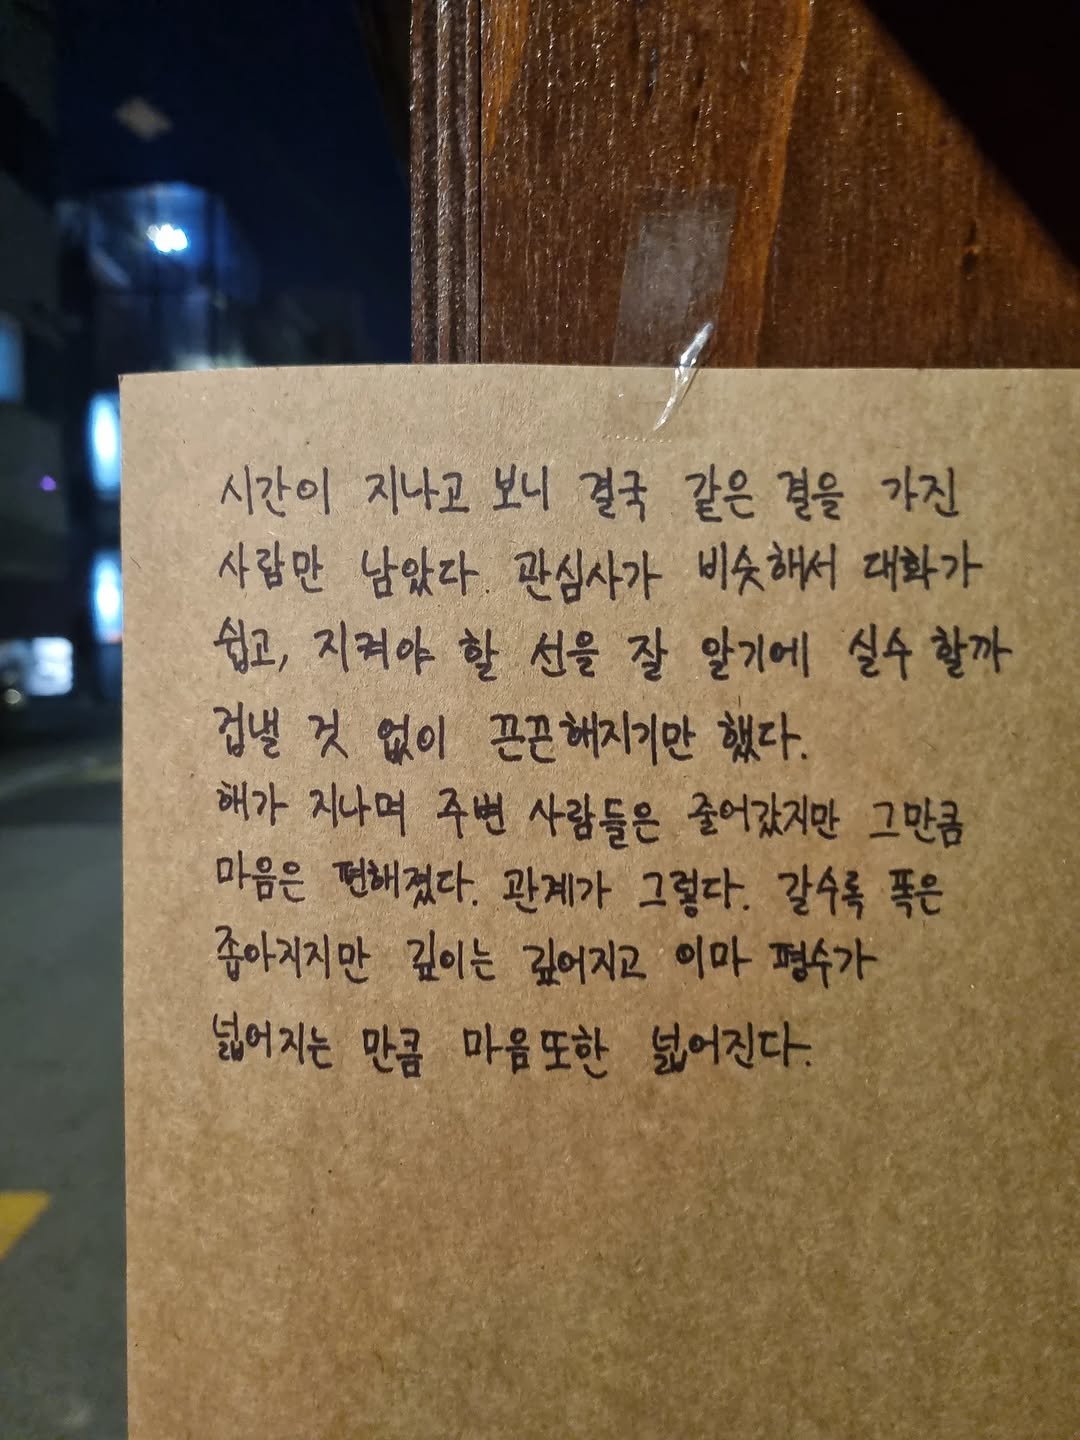 시간이 지나고 보니 결국 같은 결을 가진
사람만 남았다. 관심사가 비슷해서 대화가
쉽고, 지켜야 할 선을 잘 알기에 실수 할까
겁낼 것 없이 끈끈해지기만 했다.
해가 지나며 주변 사람들은 줄어갔지만 그만큼
마음은 편해졌다. 관계가 그렇다. 갈수록 폭은
좁아지지만 깊이는 깊어지고 이마 평수가
넓어지는 만큼 마음또한 넓어진다.